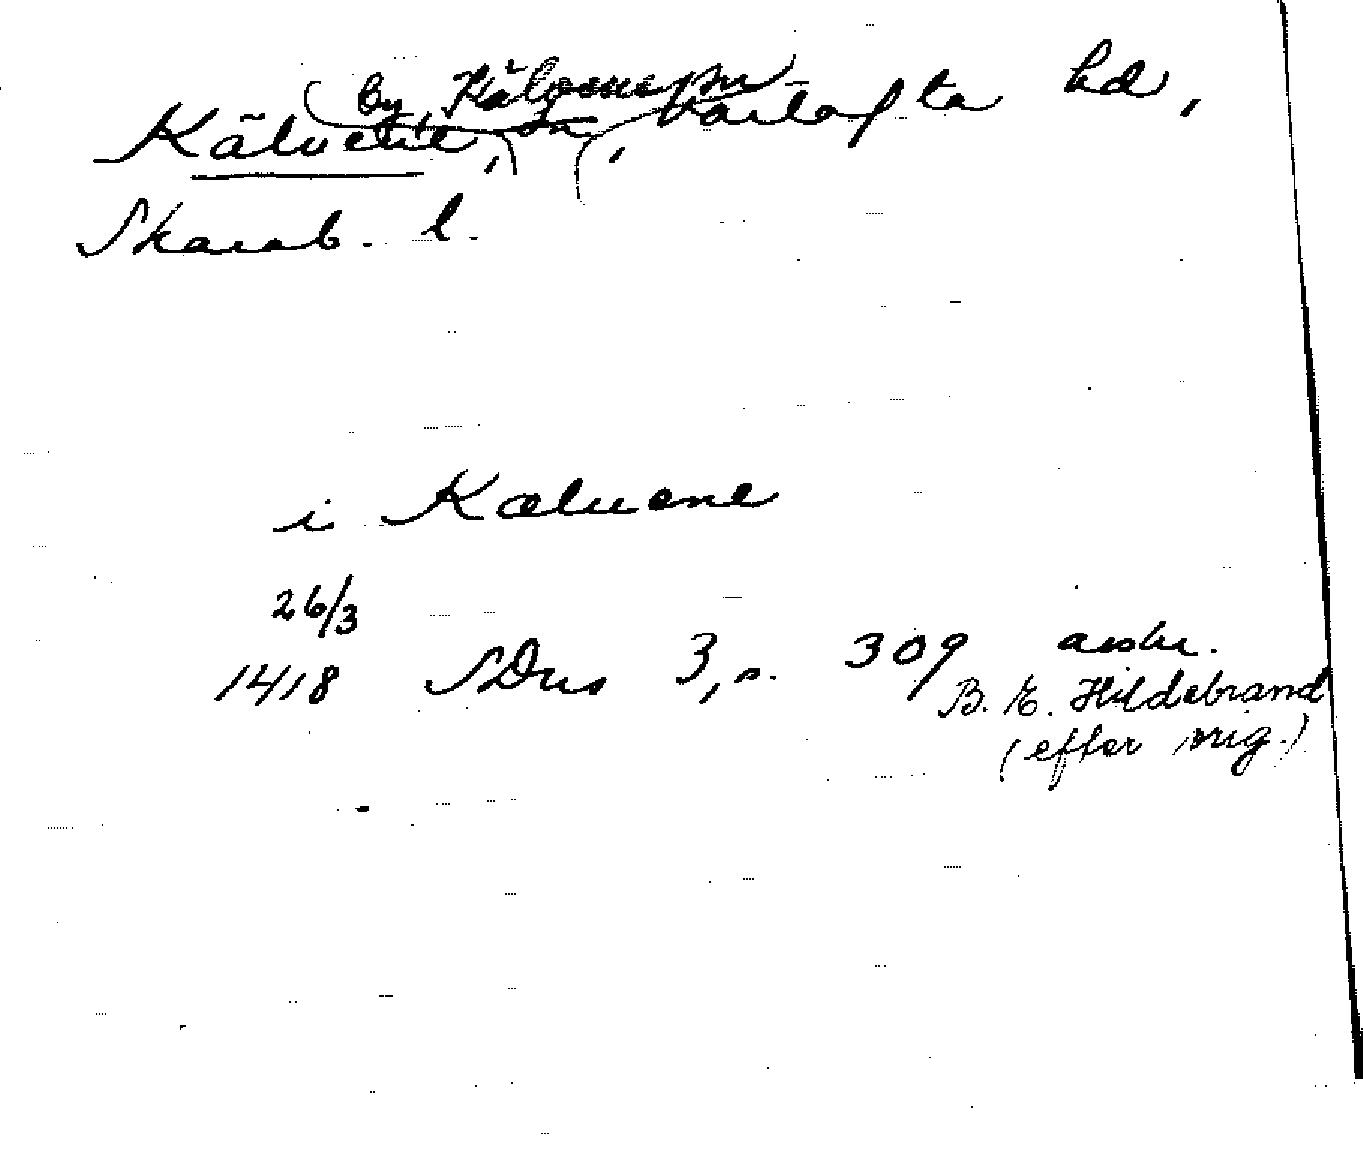 by, Kälvene sn
Kälvene, sn, Kartafta hd,
Skarab. l.
i Kæluene
26/3
1418 SDns 3, s. 309 avskr.
B. E. Hildebrand
(efter orig.)